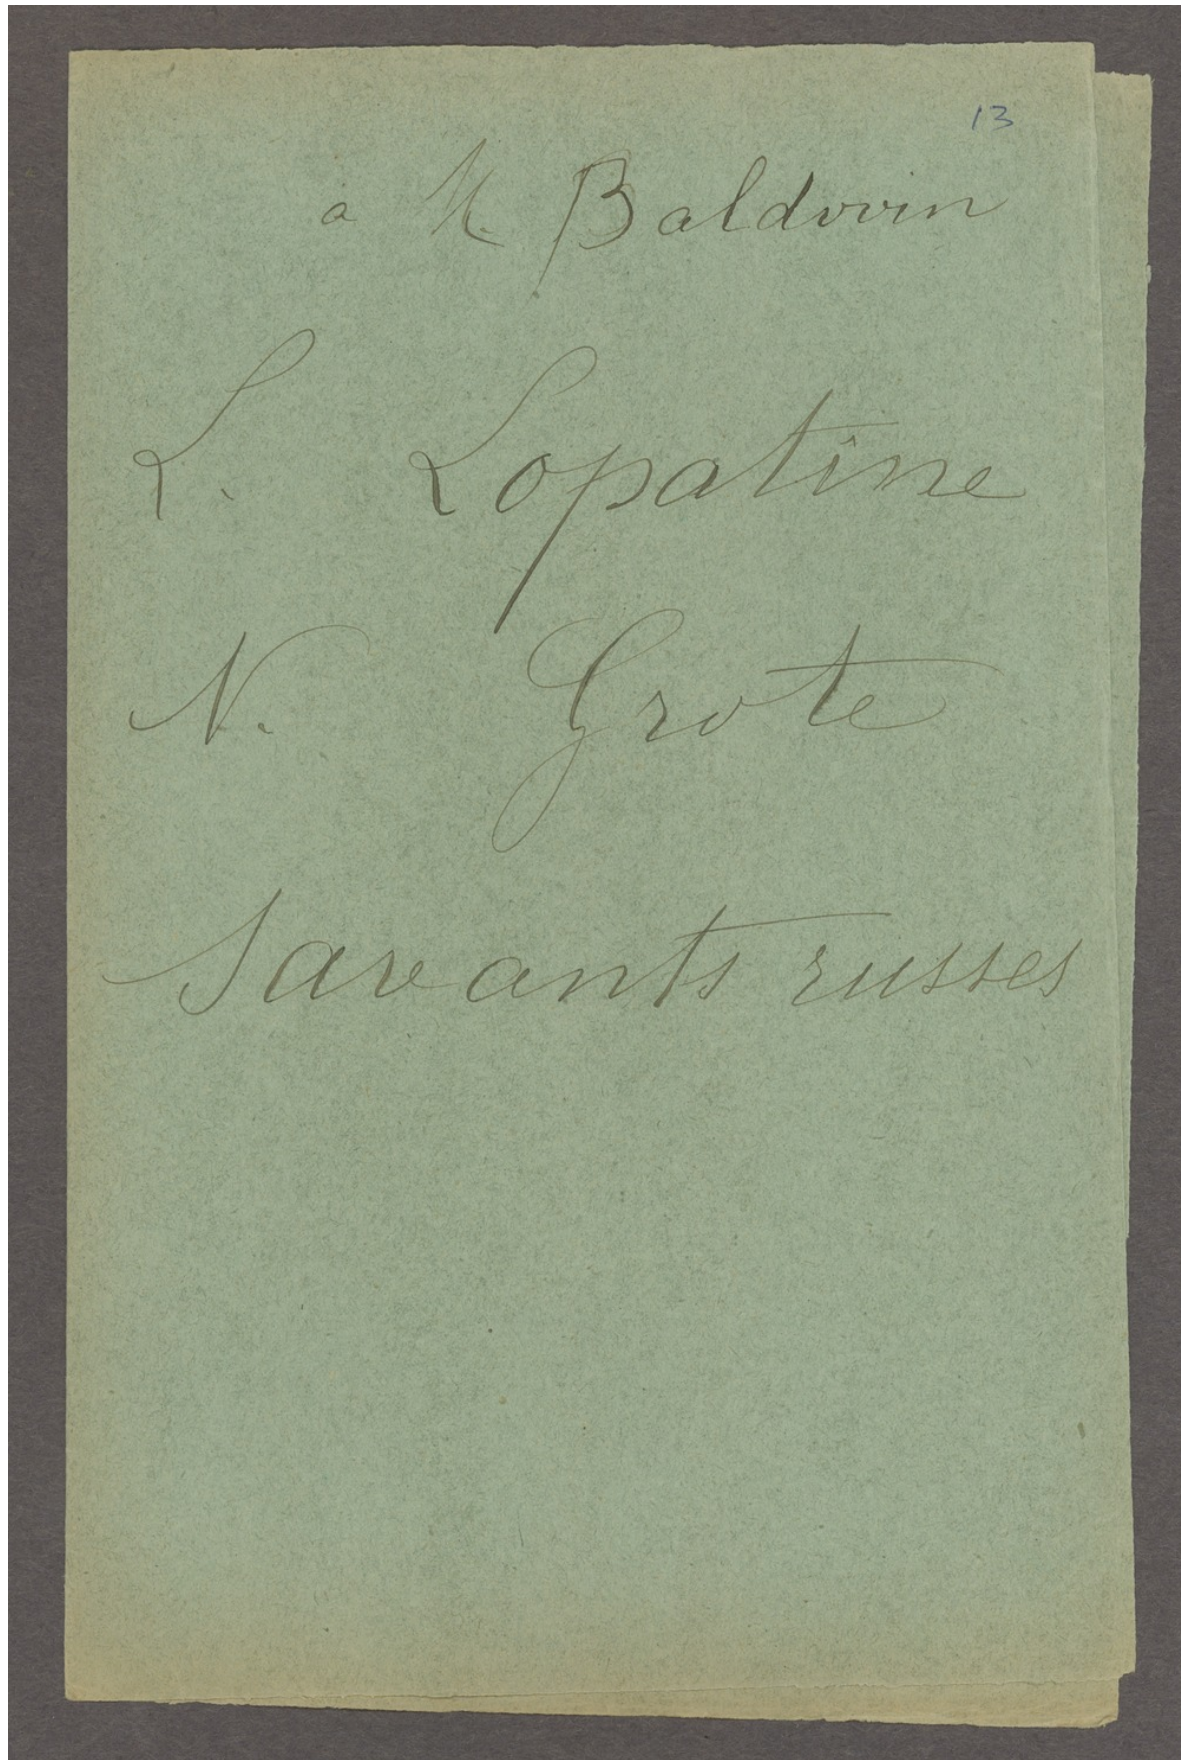 13
a M. Baldwin
L. Lopatine
N. Grote
Savants russes